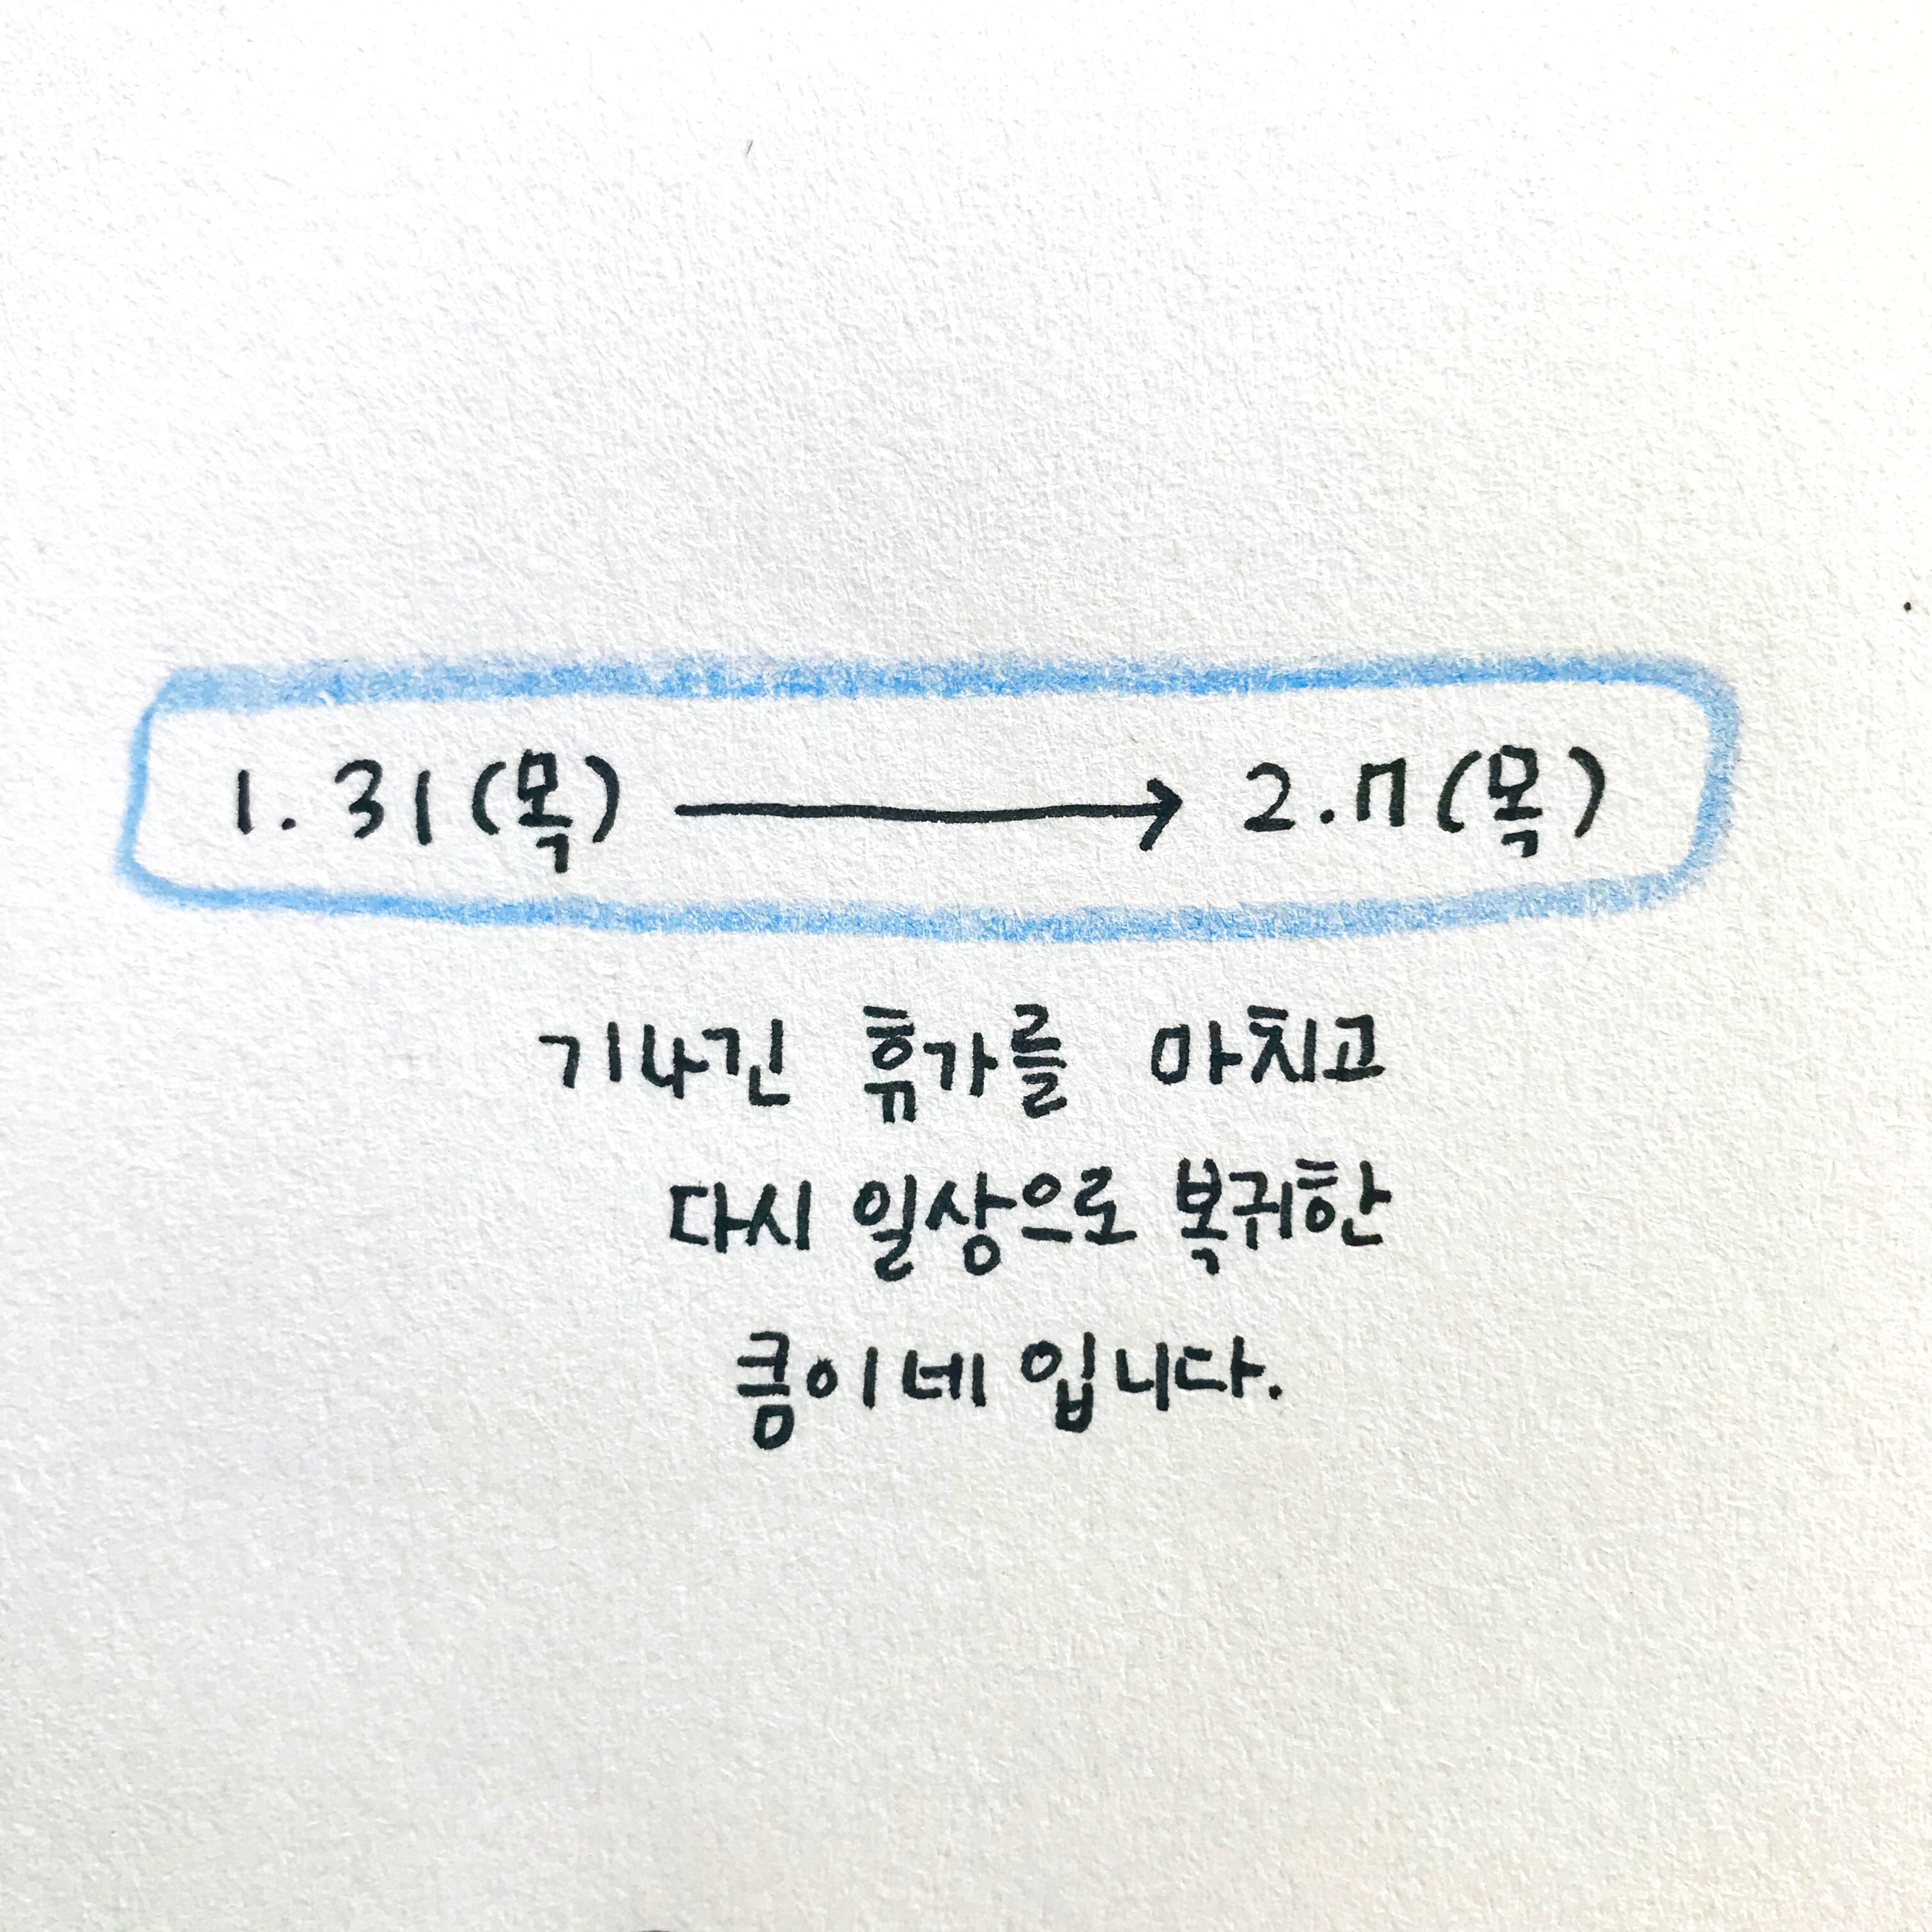 1.31(목) → 2.7(목)
기나긴 휴가를 마치고
다시 일상으로 복귀한
큼이네 입니다.